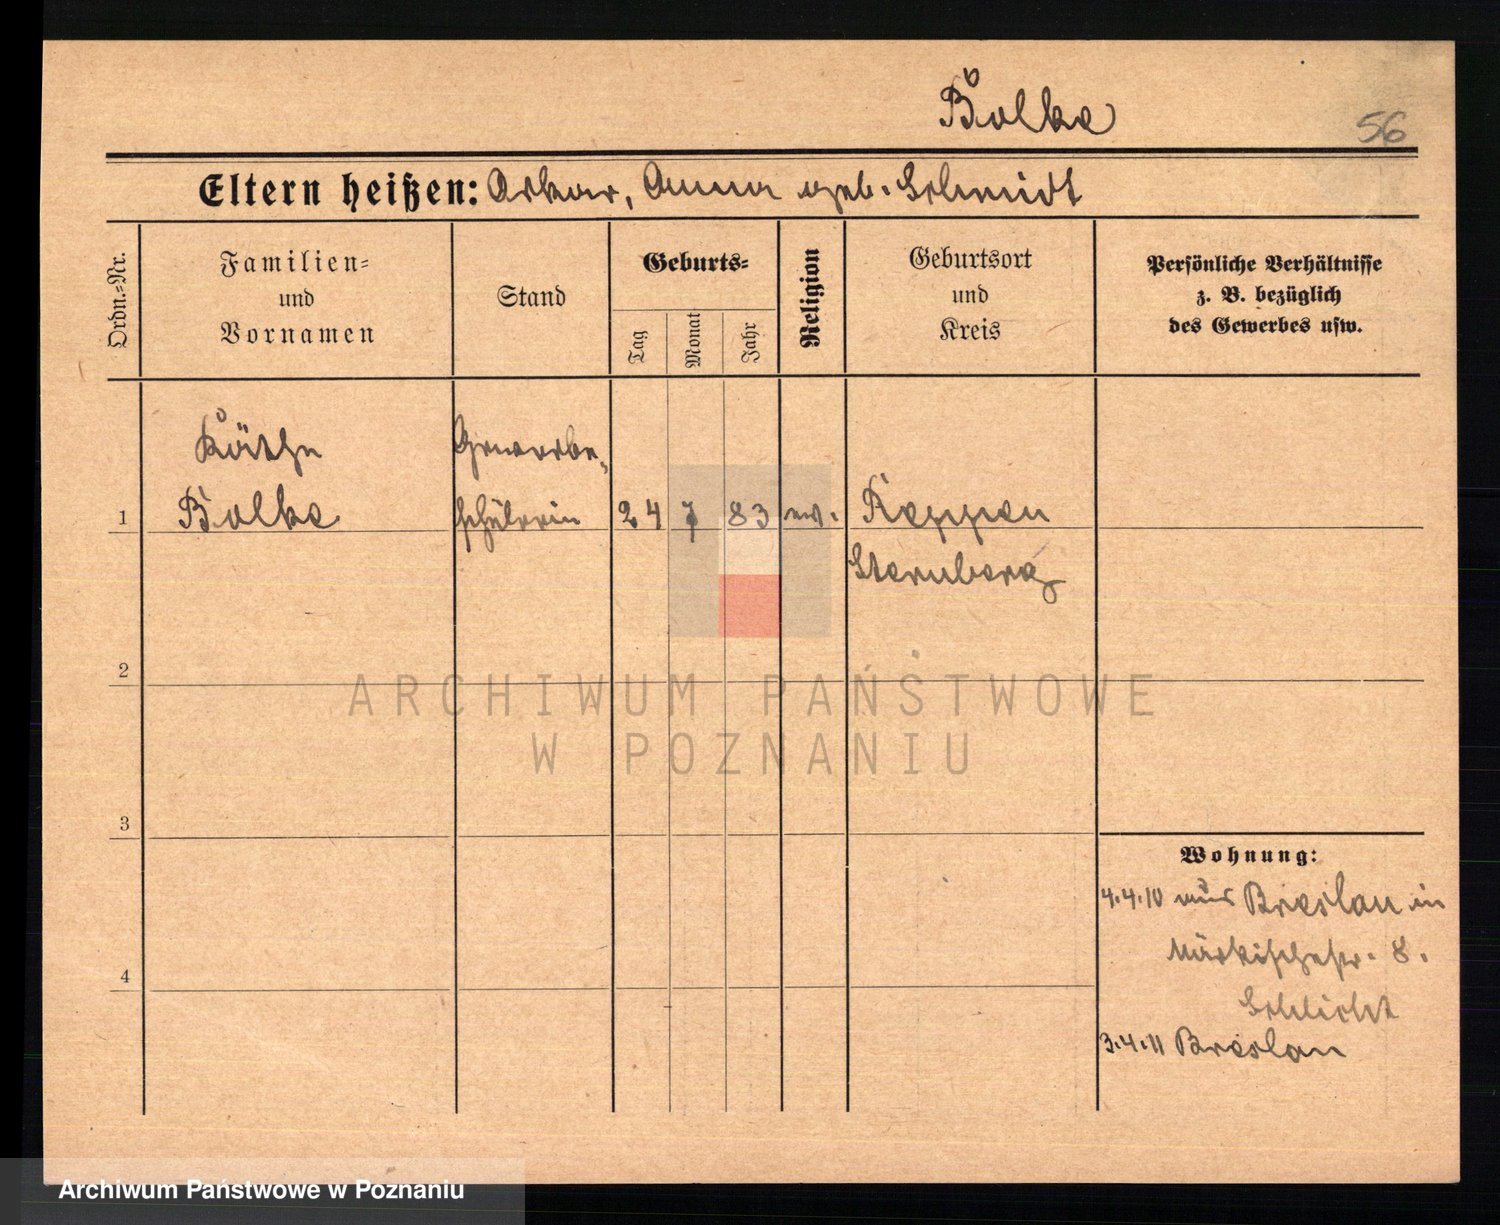 Bolke
56
Eltern heißen: Oskar, Anna geb. Schmidt
Ordn.=Nr.
Familien=
und
Vornamen
Stand
Geburts=
Tag
Monat
Jahr
Religion
Geburtsort
und
Kreis
Persönliche Verhältnisse
z. B. bezüglich
des Gewerbes usw.
Käthe
Bolke
Gewerbe-
schülerin
1
24 7 83 ev.
Reppen
Sternberg
2
ARCHIWUM PAŃSTWOWE
W POZNANIU
3
Wohnung:
4.4.10 aus Breslau in
Märkischestr. 8.
Schlicht
4
3.4.11 Breslau
Archiwum Państwowe w Poznaniu